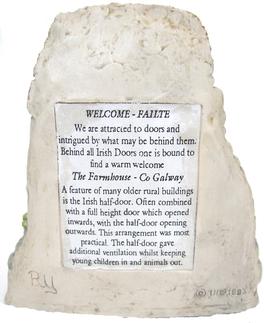 WELCOME - FAILTE
We are attracted to doors and
intrigued by what may be behind them.
Behind all Irish Doors one is bound to
find a warm welcome
The Farmhouse - Co Galway
A feature of many older rural buildings
is the Irish half-door. Often combined
with a full height door which opened
inwards, with the half-door opening
outwards. This arrangement was most
practical. The half-door gave
additional ventilation whilst keeping
young children in and animals out.